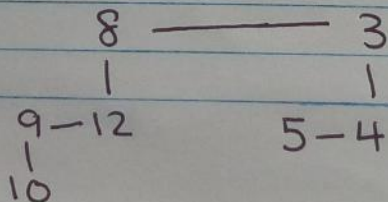 8 — 3
9 – 12 5 – 4
10